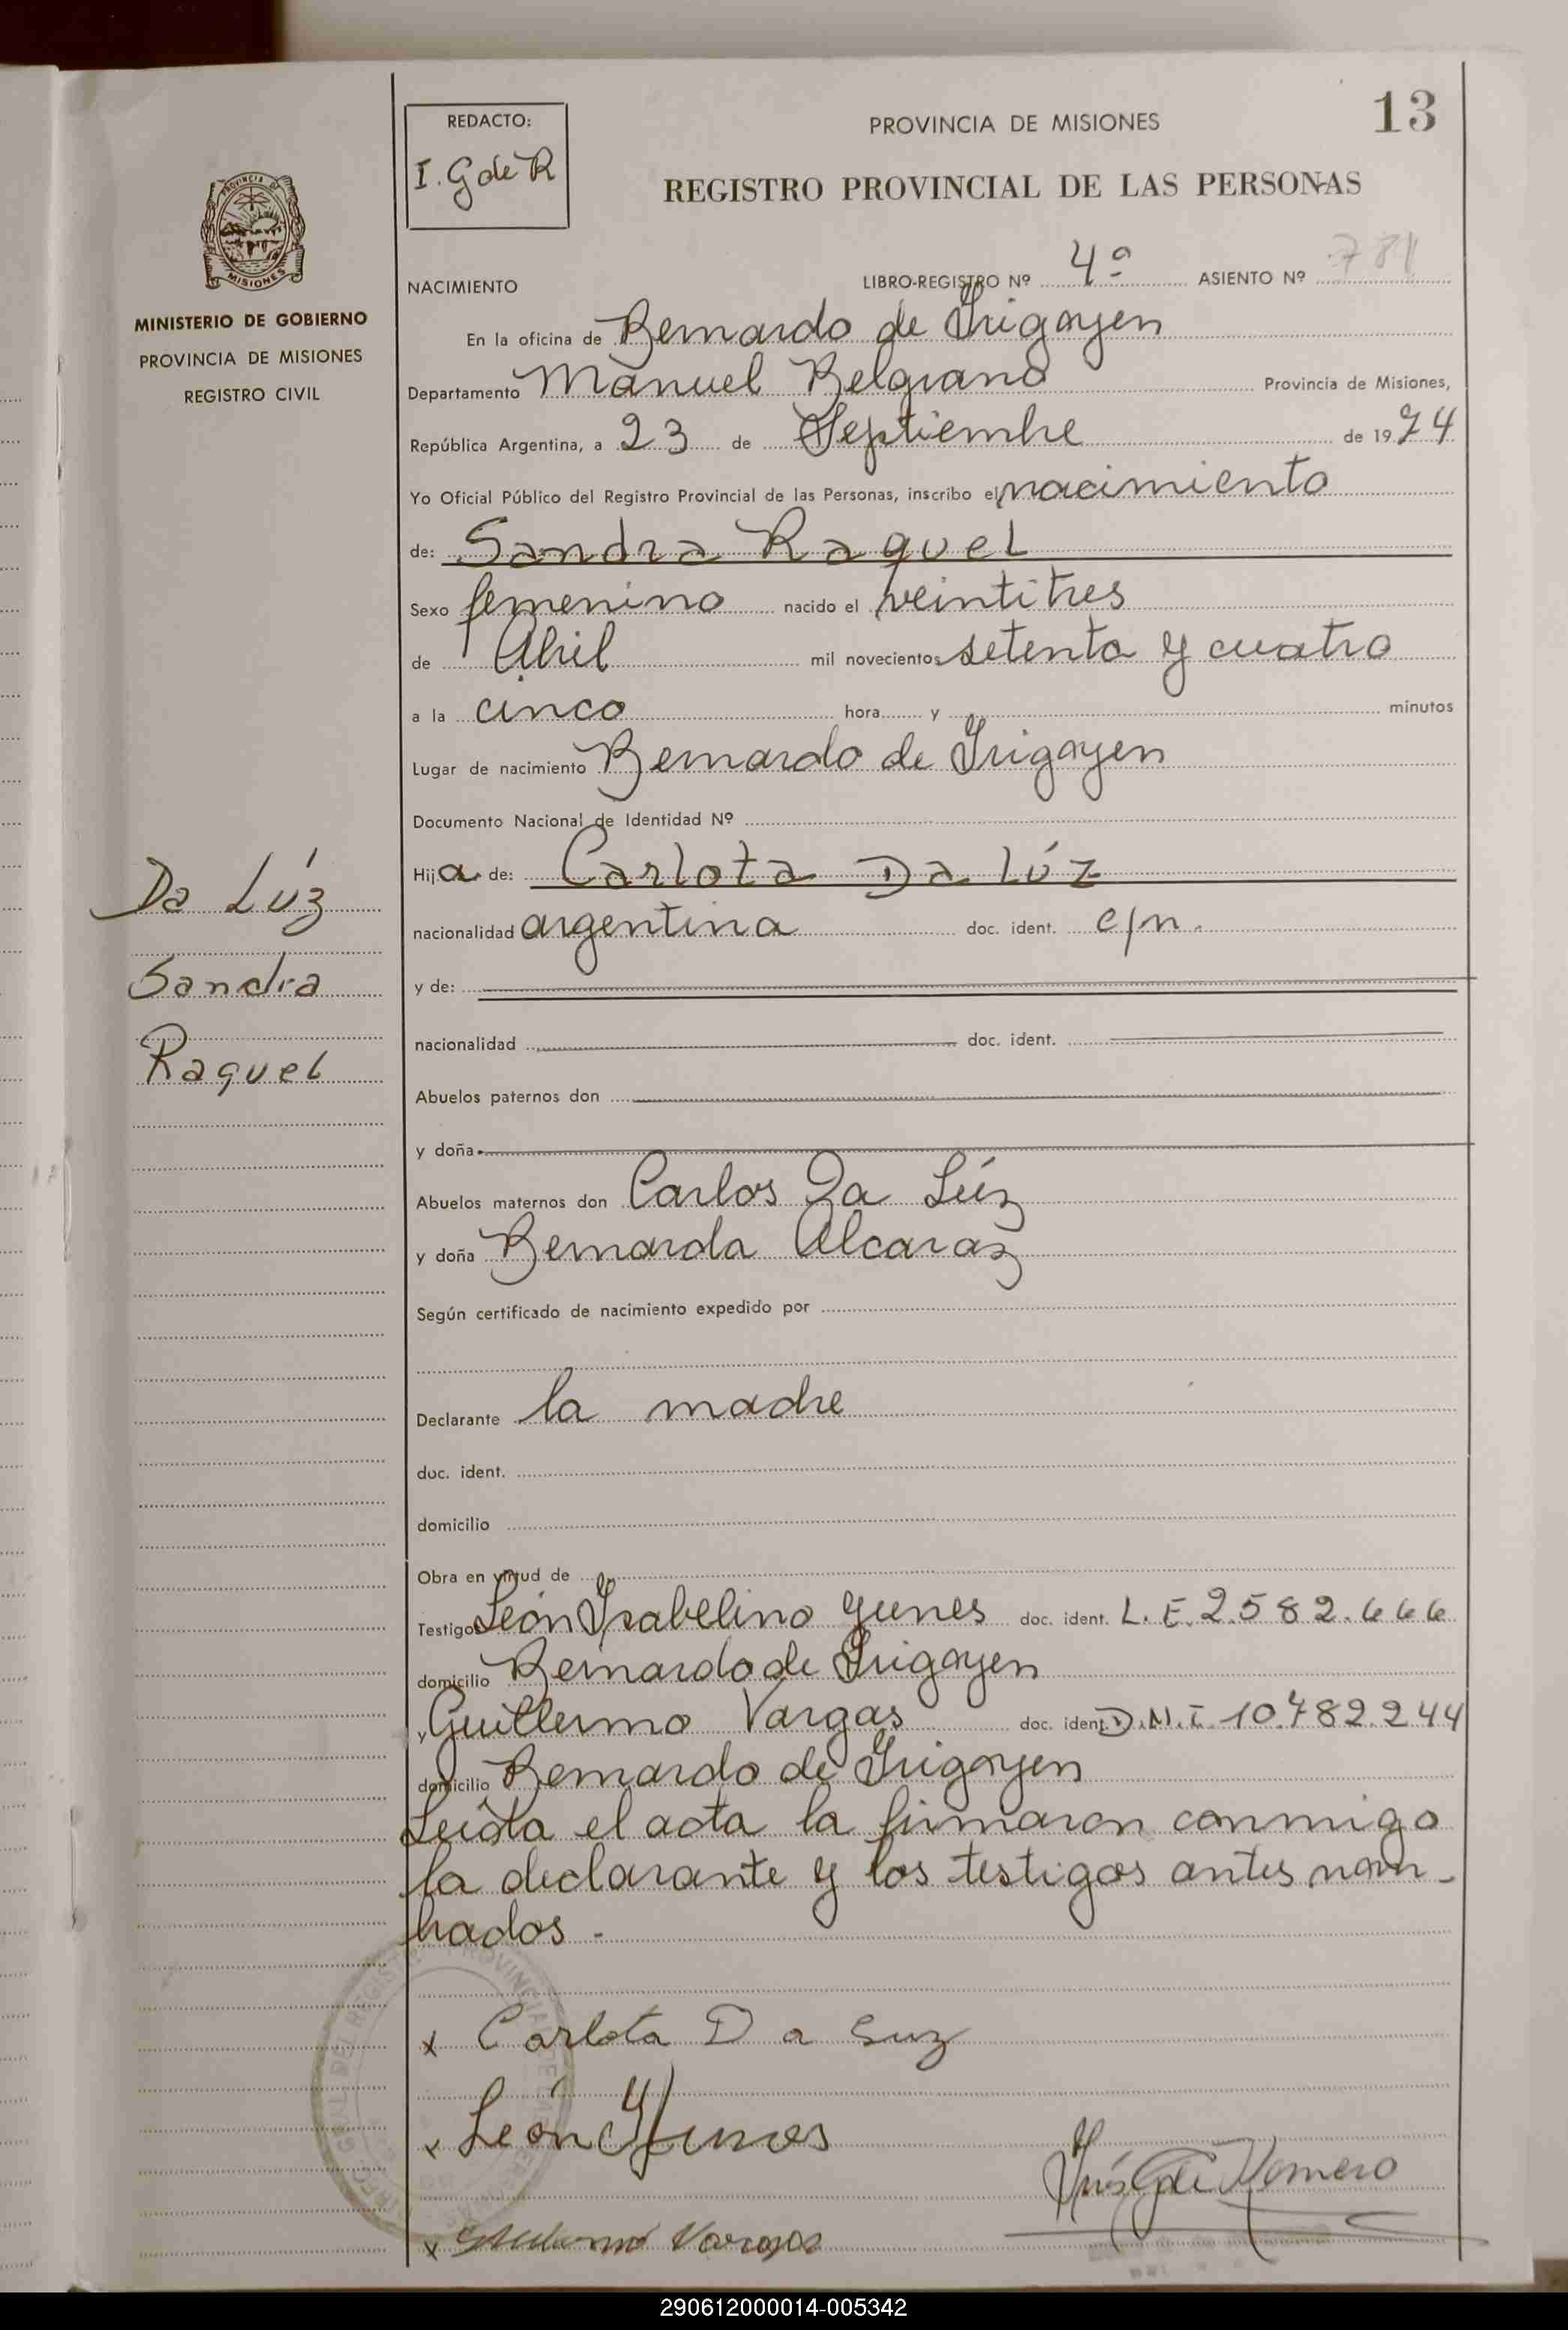 13
REDACTO:
I. G de R
PROVINCIA DE MISIONES
REGISTRO PROVINCIAL DE LAS PERSONAS
PROVINCIA DE
MISIONES
MINISTERIO DE GOBIERNO
PROVINCIA DE MISIONES
REGISTRO CIVIL
NACIMIENTO LIBRO-REGISTRO Nº 4º ASIENTO Nº 781
En la oficina de Bernardo de Irigoyen
Departamento Manuel Belgrano Provincia de Misiones,
República Argentina, a 23 de Septiembre de 1974
Yo Oficial Público del Registro Provincial de las Personas, inscribo el nacimiento
de: Sandra Raquel
Sexo femenino nacido el veintitres
de Abril mil novecientos setenta y cuatro
a la cinco hora y minutos
Lugar de nacimiento Bernardo de Irigoyen
Documento Nacional de Identidad Nº
Hija de: Carlota Da Lúz
nacionalidad argentina doc. ident. c/n.
y de:
nacionalidad doc. ident.
Abuelos paternos don
y doña
Abuelos maternos don Carlos Da Lúz
y doña Bernarda Alcaraz
Según certificado de nacimiento expedido por
Declarante la madre
doc. ident.
domicilio
Obra en virtud de
Testigo León Isabelino Yunes doc. ident. L.E. 2.582.666
domicilio Bernardo de Irigoyen
y Guillermo Vargas doc. ident. D.N.I. 10.782.244
domicilio Bernardo de Irigoyen
Leída el acta la firmaron conmigo
la declarante y los testigos antes nom-
brados -
Da Lúz
Sandra
Raquel
x Carlota Da Luz
x León Yunes
Inés G de Romero
x Guillermo Vargas
290612000014-005342